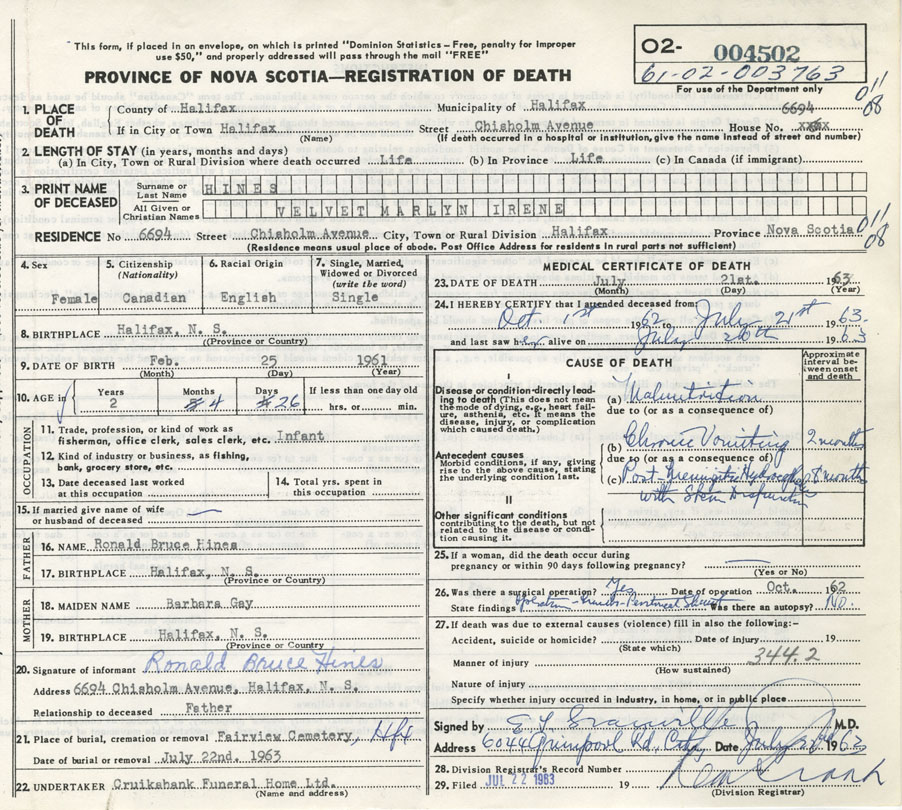 "This form, if placed in an envelope, on which is printed "Dominion Statistics - Free, penalty for improper
use $50," and properly addressed will pass through the mail "FREE"
O2- 004502
61-02-003763
PROVINCE OF NOVA SCOTIA—REGISTRATION OF DEATH
For use of the Department only
1. PLACE OF DEATH
County of Halifax Municipality of Halifax 6694 011/08
If in City or Town Halifax Street Chisholm Avenue House No.
(Name) (If death occurred in a hospital or institution, give the name instead of street and number)
2. LENGTH OF STAY (in years, months and days)
(a) In City, Town or Rural Division where death occurred Life (b) In Province Life (c) In Canada (if immigrant)
3. PRINT NAME OF DECEASED
Surname or Last Name HINES
All Given or Christian Names VELVET MARLYN IRENE
RESIDENCE No 6694 Street Chisholm Avenue City, Town or Rural Division Halifax Province Nova Scotia 011/08
(Residence means usual place of abode. Post Office Address for residents in rural parts not sufficient)
4. Sex
Female
5. Citizenship
(Nationality)
Canadian
6. Racial Origin
English
7. Single, Married,
Widowed or Divorced
(write the word)
Single
8. BIRTHPLACE Halifax, N. S.
(Province or Country)
9. DATE OF BIRTH Feb. 25 1961
(Month) (Day) (Year)
10. AGE in Years Months Days If less than one day old
2 4 26 hrs. or min.
OCCUPATION
11. Trade, profession, or kind of work as
fisherman, office clerk, sales clerk, etc. Infant
12. Kind of industry or business, as fishing,
bank, grocery store, etc.
13. Date deceased last worked
at this occupation
14. Total yrs. spent in
this occupation
15. If married give name of wife
or husband of deceased
FATHER
16. NAME Ronald Bruce Hines
17. BIRTHPLACE Halifax, N. S.
(Province or Country)
MOTHER
18. MAIDEN NAME Barbara Gay
19. BIRTHPLACE Halifax, N. S.
(Province or Country
20. Signature of informant Ronald Bruce Hines
Address 6694 Chisholm Avenue, Halifax, N. S.
Relationship to deceased Father
21. Place of burial, cremation or removal Fairview Cemetery, Hfx
Date of burial or removal July 22nd. 1963
22. UNDERTAKER Cruikshank Funeral Home Ltd.
(Name and address)
MEDICAL CERTIFICATE OF DEATH
23. DATE OF DEATH July 21st. 1963
(Month) (Day) (Year)
24. I HEREBY CERTIFY that I attended deceased from:
Oct 1st 1962 to July 21st 1963.
and last saw her alive on July 20th 1963
CAUSE OF DEATH
Approximate
interval be-
tween onset
and death
I
Disease or condition directly lead-
ing to death (This does not mean
the mode of dying, e.g., heart fail-
ure, asthenia, etc. It means the
disease, injury, or complication
which caused death.)
(a) Malnutrition
due to (or as a consequence of)
Antecedent causes
Morbid conditions, if any, giving
rise to the above cause, stating
the underlying condition last.
(b) Chronic Vomiting 2 months
due to (or as a consequence of)
(c) Post Meningitic 8 months
with
II
Other significant conditions
contributing to the death, but not
related to the disease or condi-
tion causing it.
25. If a woman, did the death occur during
pregnancy or within 90 days following pregnancy?
(Yes or No)
26. Was there a surgical operation? Yes Date of operation Oct. 1962
State findings Was there an autopsy? NO.
27. If death was due to external causes (violence) fill in also the following:-
Accident, suicide or homicide? Date of injury 19
(State which)
Manner of injury 344.2
(How sustained)
Nature of injury
Specify whether injury occurred in industry, in home, or in public place
Signed by M.D.
Address City Date July 1963
28. Division Registrar's Record Number
29. Filed JUL 22 1963 19
(Division Registrar)